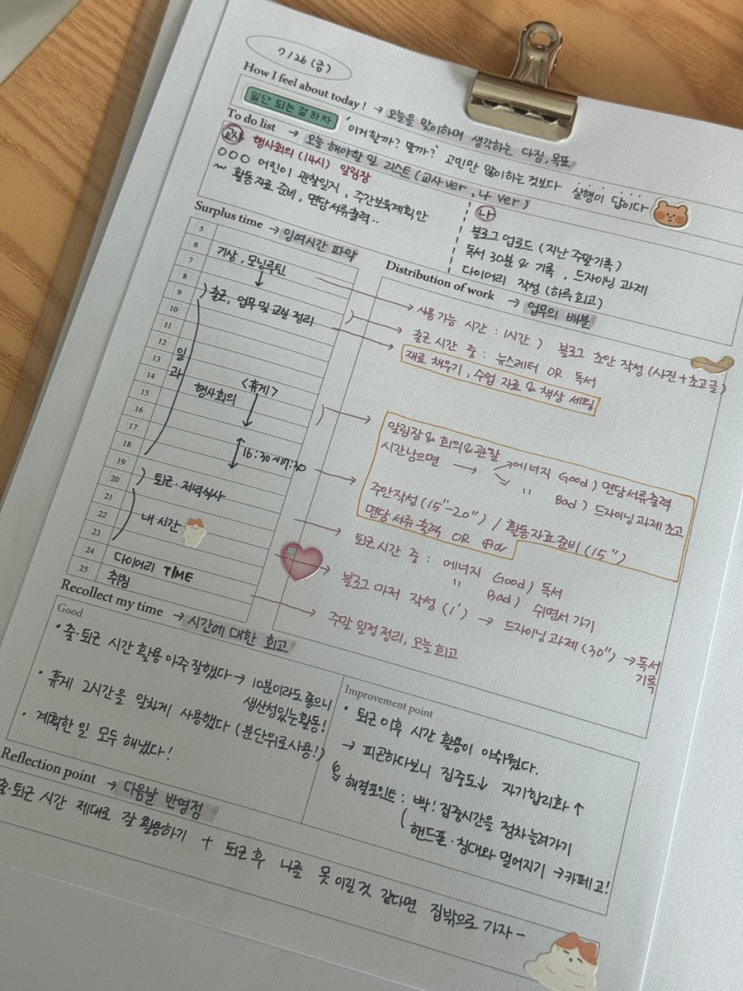 7/26 (금)
How I feel about today! → 오늘을 맞이하며 생각하는 다짐, 목표
일단 되는 걸 하자 '이거할까? 말까?' 고민만 많이하는 것보다 실행이 답이다
To do list → 오늘 해야할 일 리스트 (교사 ver, 나 ver)
교사 행사회의 (14시) 알림장
○○○ 어린이 관찰일지, 주간보육계획안
~ 활동자료 준비, 면담서류출력..
나
블로그 업로드 (지난 주말기록)
독서 30분 & 기록, 드자이닝 과제
다이어리 작성 (하루 회고)
Surplus time → 잉여시간 파악
5
6
7 기상, 모닝루틴
8
9 출근, 업무 및 교실 정리
10
11
12
13 일과
14 <휴게>
15 행사회의
16
17 16:30~17:30
18
19
20 퇴근·저녁식사
21
22 내 시간
23
24 다이어리 TIME
25 취침
Distribution of work → 업무의 배분
→ 사용가능 시간 : (1시간) 블로그 초안 작성 (사진+초고글)
→ 출근 시간 중 : 뉴스레터 OR 독서
재료 채우기, 수업 자료 & 책상 세팅
알림장 & 회의 & 관찰
시간남으면 → 에너지 Good) 면담서류출력
↘ " Bad) 드자이닝과제 초고
주안작성 (15"-20") / 활동자료준비 (15")
면담 서류 출력 OR
퇴근시간 중 : 에너지 Good) 독서
" Bad) 쉬면서 가기
블로그 마저 작성 (1') → 드자이닝 과제 (30") → 독서
기록
주말 일정 정리, 오늘 회고
Recollect my time → 시간에 대한 회고
Good
· 출·퇴근 시간 활용 아주 잘했다 → 10분이라도 좋으니
생산성있는 활동!
· 휴게 2시간을 알차게 사용했다 (분단위로 사용!)
· 계획한 일 모두 해냈다!
Improvement point
· 퇴근 이후 시간 활용이 아쉬웠다.
→ 피곤하다보니 집중도↓ 자기합리화↑
해결포인트 : 빡! 집중시간을 점차 늘려가기
( 핸드폰·침대와 멀어지기 → 카페 고!
Reflection point → 다음날 반영점
출·퇴근 시간 제대로 잘 활용하기 + 퇴근 후 나를 못 이길 것 같다면 집밖으로 가자-